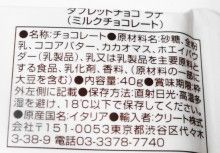 タブレットチョコ ラナ
(ミルクチョコレート)
●名称:チョコレート●原材料名:砂糖、全粉
乳、ココアバター、カカオマス、ホエイパウ
ダー(乳製品)、乳又は乳製品を主要原料と
する食品、乳化剤、香料、(原材料の一部に
大豆を含む)●内容量:40g●賞味期限:枠
外左側に記載●保存方法:直射日光・高温多
湿を避け、18℃以下で保存してください。
●原産国名:イタリア●輸入者:クリート株式
〒151-0053 東京都渋谷区代々木
3-38-9 電話 03-3378-7740